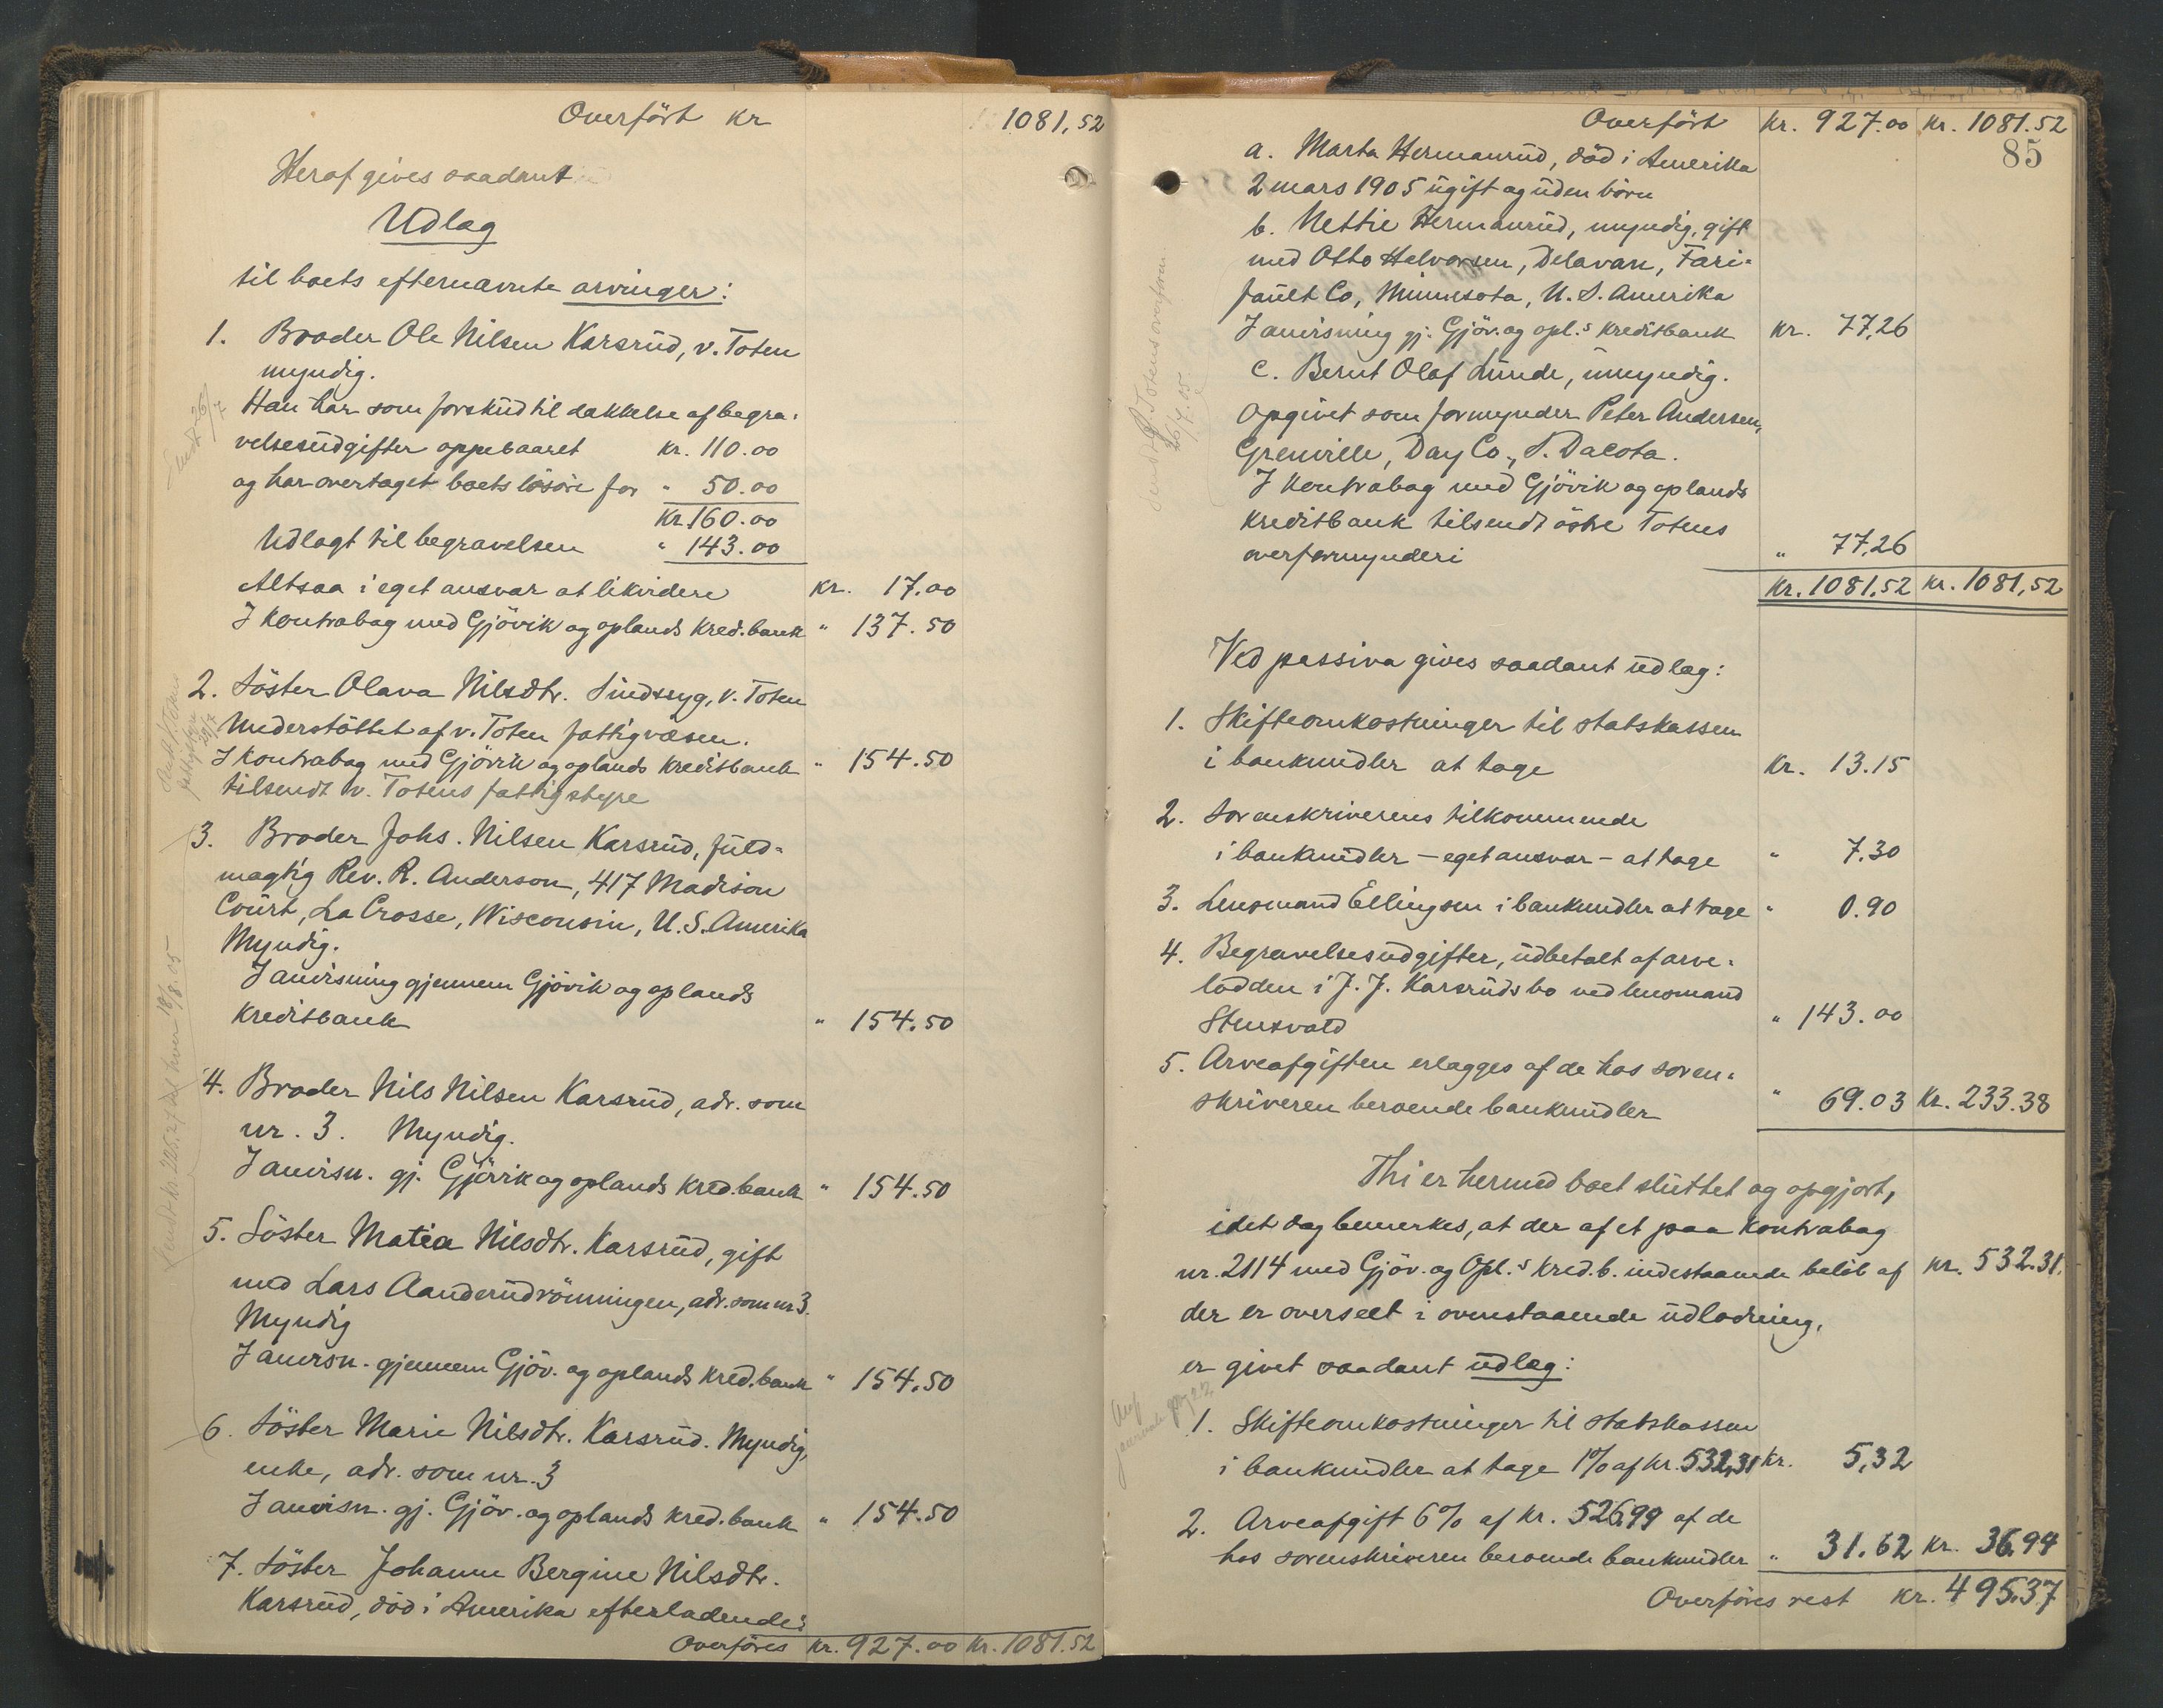 Overført kr 1081,52
Heraf gives saadant
Udlæg
til boets efternævnte arvinger:
1. Broder Ole Nilsen Karsrud, v. Toten
myndig.
Han har som forskud til dækkelse af begra-
velsesudgifter oppebaaret kr. 110.00
og har overtaget boets løsøre for " 50.00
Kr. 160.00
Udlagt til begravelsen " 143.00
Altsaa i eget ansvar at likvidere kr. 17.00
I kontrabog med Gjøvik og oplands kred.bank " 137.50
2. Søster Olava Nilsdtr. Sindssyg, v. Toten
Understøttet af v. Toten fattigvæsen.
I kontrabog med Gjøvik og oplands kreditbank " 154.50
tilsendt v. Totens fattigstyre
3. Broder Johs. Nilsen Karsrud, fuld-
mægtig Rev. R. Anderson, 417 Madison
Court, La Crosse, Wisconsin, U.S. Amerika
Myndig.
I anvisning gjennem Gjøvik og oplands
kreditbank " 154.50
4. Broder Nils Nilsen Karsrud, adr. som
nr. 3. Myndig.
I anvisn. gj. Gjøvik og oplands kred.bank " 154.50
5. Søster Matea Nilsdtr. Karsrud, gift
med Lars Aanderudrønningen, adr. som nr 3.
Myndig
I anvisn. gjennem Gjøv. og oplands kred.bank " 154.50
6. Søster Marie Nilsdtr. Karsrud. Myndig,
enke, adr. som nr. 3
I anvisn. gj. Gjøv. og oplands kred.bank " 154.50
7. Søster Johanne Bergine Nilsdtr.
Karsrud, død i Amerika efterladende:
Overføres kr. 927.00 kr. 1081.52
Overført kr. 927.00 kr. 1081.52
85
a. Marta Hermanrud, død i Amerika
2 mars 1905 ugift og uden børn
b. Nettie Hermanrud, myndig, gift
med Otto Halvorsen, Delavan, Fari-
fault Co, Minnesota, U. S. Amerika
I anvisning gj. Gjøv. og opl.s kreditbank kr. 77,26
c. Bernt Olaf Lunde, umyndig.
Opgivet som formynder Peter Andersen,
Grenville, Day Co., S. Dacota.
I kontrabog med Gjøvik og oplands
kreditbank tilsendt østre Totens
overformynderi " 77,26
Kr. 1081,52 kr. 1081,52
Ved passiva gives saadant udlæg:
1. Skifteomkostninger til statskassen
i bankmidler at tage kr. 13.15
2. Sorenskriverens tilkommende
i bankmidler – eget ansvar – at tage " 7.30
3. Lensmand Ellingsen i bankmidler at tage " 0.90
4. Begravelsesudgifter, udbetalt af arve-
lodden i J. J. Karsruds bo ved lensmand
Stensvold " 143.00
5. Arveafgiften erlægges af de hos soren-
skriveren beroende bankmidler " 69.03 kr. 233.38
Thi er hermed boet sluttet og opgjort,
idet dog bemerkes, at der af et paa kontrabog
nr. 2114 med Gjøv. og Opl.s kred.b. indestaaende beløb af kr. 532.31.
der er overseet i ovenstaaende udlodning,
er givet saadant udlæg:
1. Skifteomkostninger til statskassen
i bankmidler at tage 1% af kr. 532,31 kr. 5,32
2. Arveafgift 6% af kr. 526,99 af de
hos sorenskriveren beroende bankmidler " 31.62 kr. 36,94
Overføres rest kr. 495,37